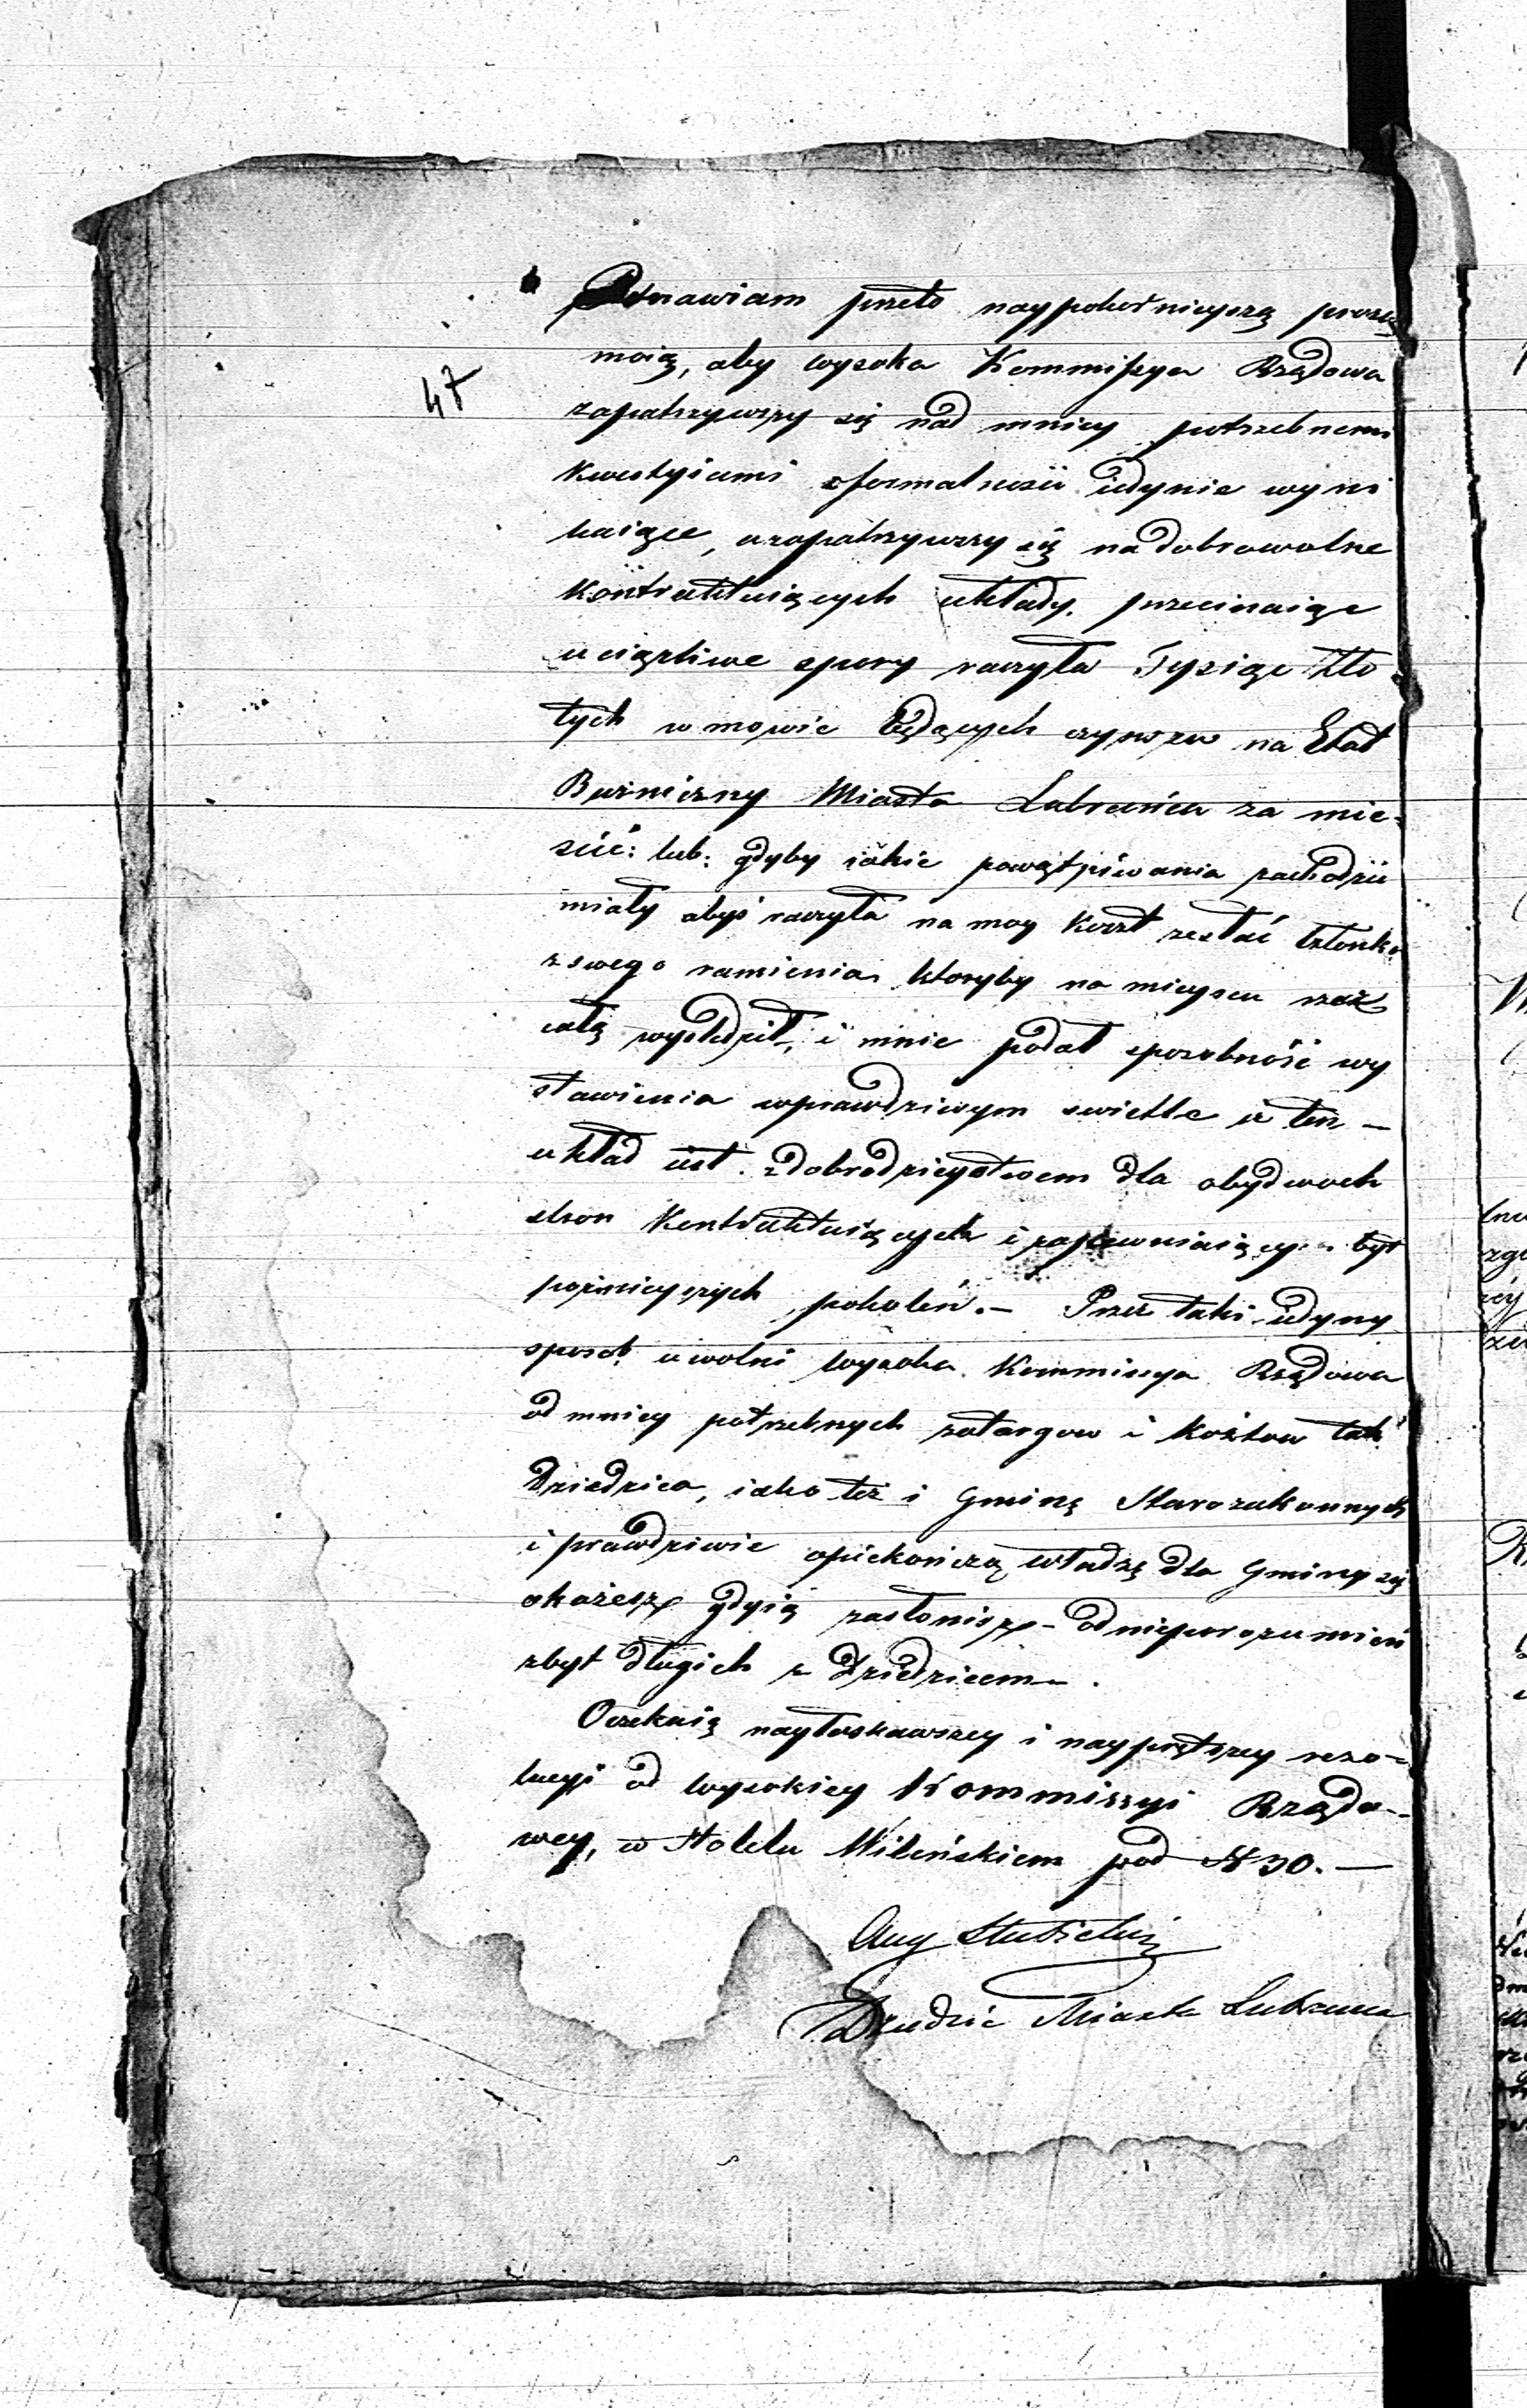 Ponawiam przeto naypokornieyszą prozbę
moią, aby wysoka Kommissya Rządowa
zapatrzywszy się nad mniey potrzebnemi
kwestyiami z formalności iedynie wyni
kaiące, a zapatrzywszy się na dobrowolne
kontraktuiących układy. przecinaiąc
uciążliwe spory raczyła Tysiąc Zło
tych w mowie będących czynszu na Etat
Bużniczny Miasta Lubrańca za mie-
ścić: lub: gdyby iakie powątpiwania zachodzić
miały abyś raczyła na moy koszt zesłać członka
z swego ramienia, ktoryby na mieyscu rzecz
całą wyśledził, i mnie podał sposobność wy
stawienia w prawdziwym swietle iż ten –
układ iest z dobrodzieystwem dla obydwoch
stron Kontraktuiących i zapewniaiącym byt
pożnieyszych pokoleń. – Przez taki iedyny
sposob uwolni wysoka Kommissya Rządowa
od mniey potrzebnych zatargow i kosztow tak
Dziedzica, iako też i Gminę Starozakonnych
i prawdziwie opiekończą władzą dla Gminy się
okażesz, gdy ią zasłonisz – od nieporozumień
zbyt długich z Dziedzicem – .
Oczekuię nayłaskawszey i nayprętszey rezo-
lucyi od wysokiey Kommissyi Rządo-
wey, w Hotelu Wileńskiem pod N 30. —
Aug Słubicki
Dziedzic Miasta Lubrańca
47